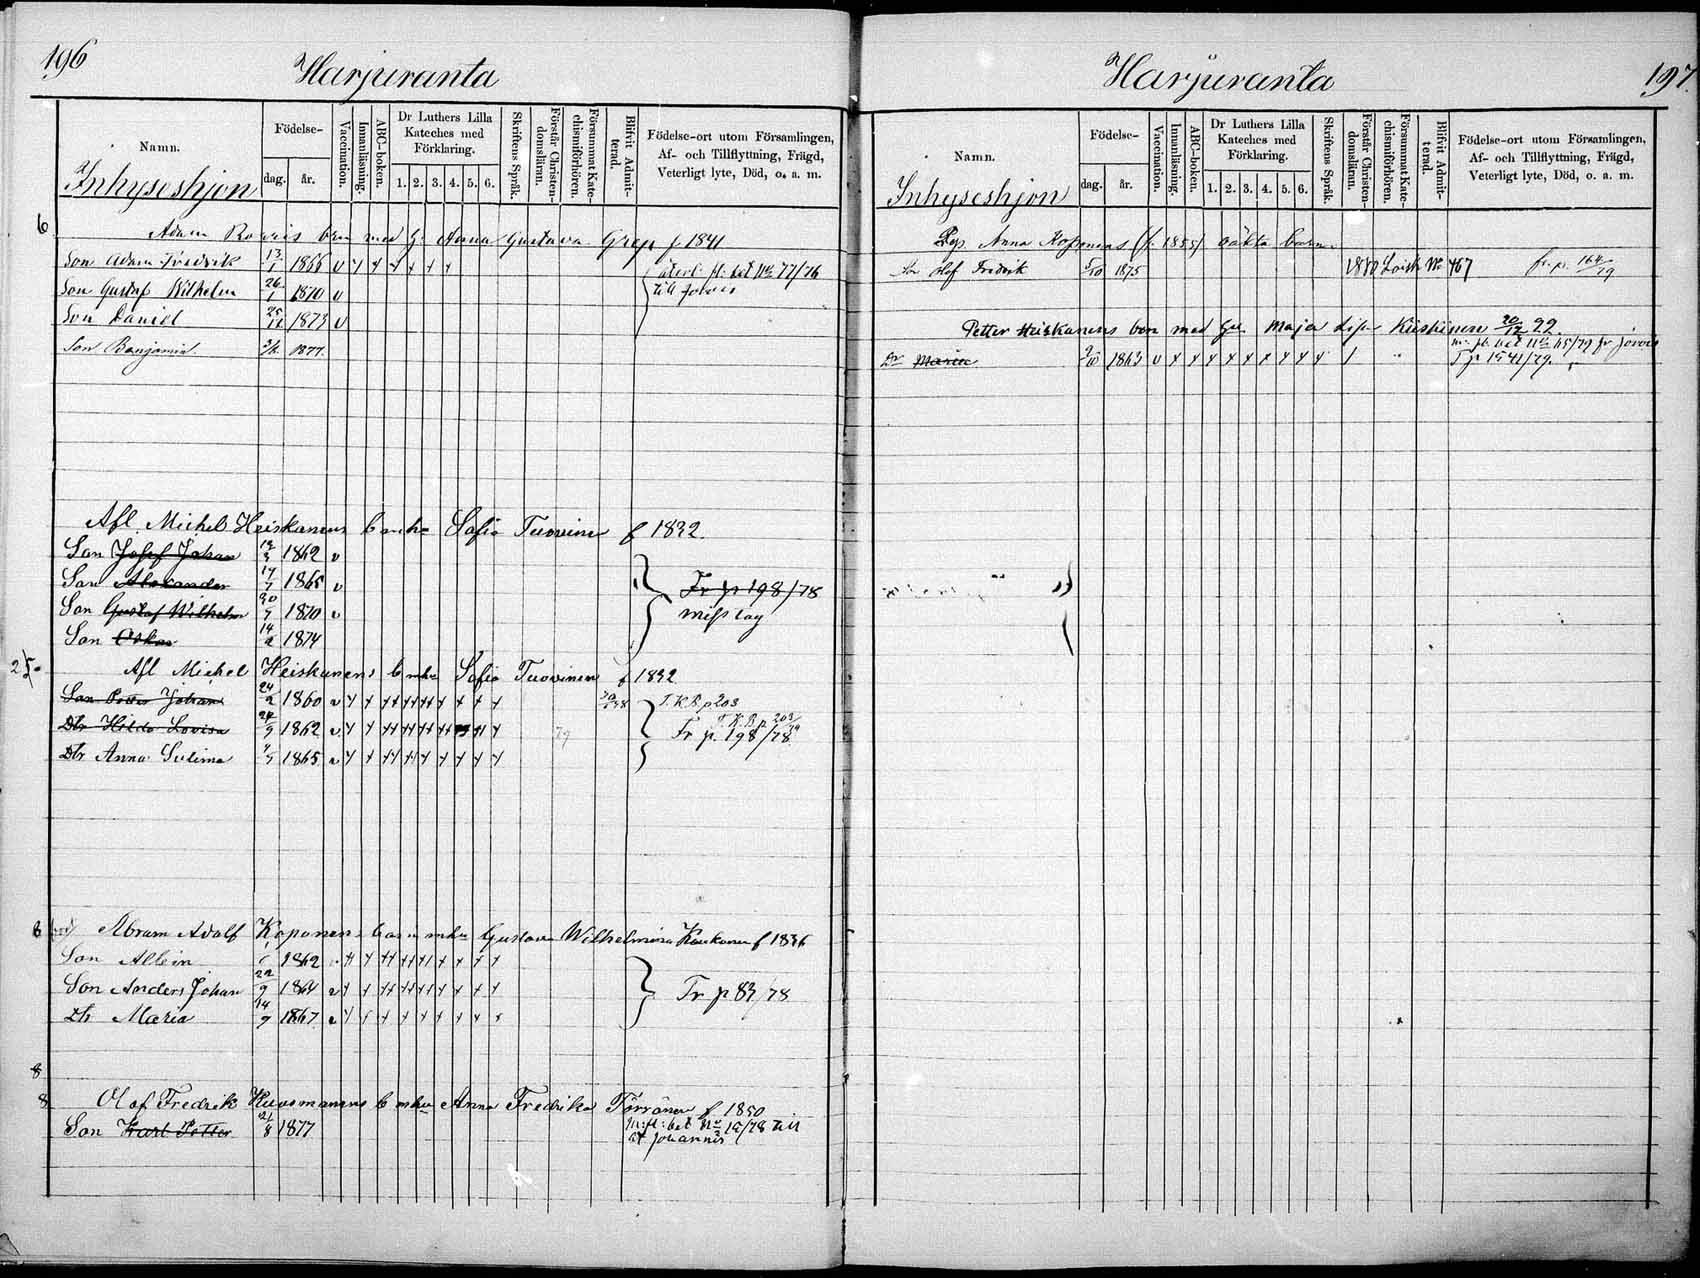 196
Harjuranta
Namn.
Födelse-
dag.
år.
Vaccination.
Innanläsning.
ABC-boken.
Dr Luthers Lilla
Kateches med
Förklaring.
1. 2. 3. 4. 5. 6.
Skriftens Språk.
Förstår Christen-
domsläran.
Försummat Kate-
chismiförhören.
Blifvit Admit-
terad.
Födelse-ort utom Församlingen,
Af- och Tillflyttning, Frägd,
Veterligt lyte, Död, o. a. m.
Inhyseshjon
6
Adam brn med h. Anna Gustava f 1841
Son Adam Fredrik 13/1 1866 v
Son Gustaf Wilhelm 26/1 1870 v
återl: fl: bet No 77/76
till Jorois
Son Daniel 25/12 1873 v
Son Benjamin 1877.
Afl Michel Heiskanens b mhu Sofia Tuovinen f 1832.
Son Josef Johan 12/3 1862 v
Son Alexander 17/7 1865 v
Son Gustaf Wilhelm 30/5 1870 v
Son Oskar 14/2 1874
Fr p 198/78
misstag
25
Afl Michel Heiskanens b mhu Sofia Tuovinen f 1832
Son Johan 24/2 1860 v
T.K.B. p 203
Dtr Hilda Lovisa 24/9 1862 v 79
T.K.B. p 203/79
Fr p. 198/78
Dtr Anna Sulima 1865 v
6
Abram Adolf Koponens barn mhu Gustava Wilhelmina Kaukonen f 1836
Son Allvin 1862
Son Anders Johan 22/9 1864 v
Dtr Maria 14/9 1867 v
Fr p 83/78
8
8
Olof Fredrik Kuosmanens b mhu Anna Fredrika Törrönen f. 1850
Son Karl Petter 21/8 1877
m: fl: bet No 15/78 till
St Johannis
Harjuranta
197.
Namn.
Födelse-
dag.
år.
Vaccination.
Innanläsning.
ABC-boken.
Dr Luthers Lilla
Kateches med
Förklaring.
1. 2. 3. 4. 5. 6.
Skriftens Språk.
Förstår Christen-
domsläran.
Försummat Kate-
chismiförhören.
Blifvit Admit-
terad.
Födelse-ort utom Församlingen,
Af- och Tillflyttning, Frägd,
Veterligt lyte, Död, o. a. m.
Inhyseshjon
Pig. Anna Koponens (f. 1855) oäkta barn
Son Olof Fredrik 5/10 1875 1880 No 467 fr. p. 164/79
Petter Heiskanens barn med hu. Maja Lisa Kiiskinen 20/12 22.
m: fl: bet No 65/79 fr Jorois
Dr Maria 9/10 1863 v
T p 1541/79.